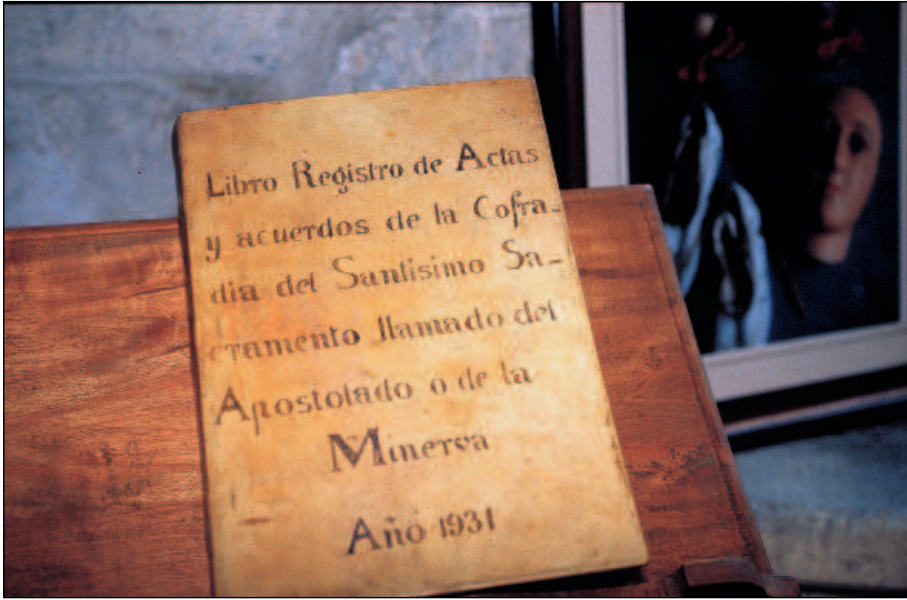 Libro Registro de Actas
y acuerdos de la Cofra-
dia del Santisimo Sa-
cramento llamado del
Apostolado o de la
Minerva
Año 1931